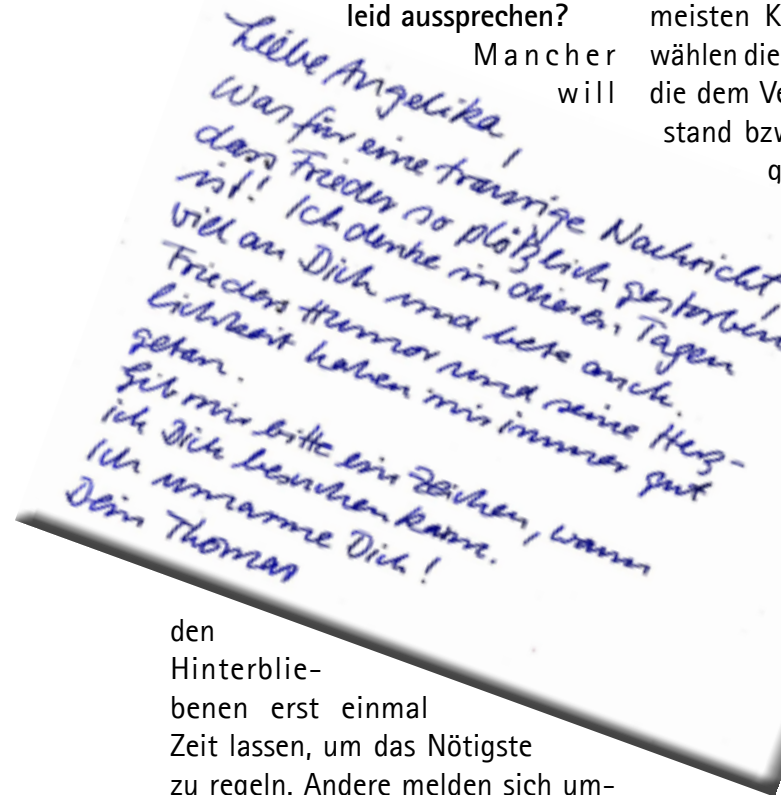 leid aussprechen?
Mancher
will
Liebe Angelika,
Was für eine traurige Nachricht,
dass Frieder so plötzlich gestorben
ist! Ich denke in diesen Tagen
viel an Dich und bete auch.
Frieders Humor und seine Herz-
lichkeit haben mir immer gut
getan.
Gib mir bitte ein Zeichen, wann
ich Dich besuchen kann.
Ich umarme Dich!
Dein Thomas
den
Hinterblie-
benen erst einmal
Zeit lassen, um das Nötigste
zu regeln. Andere melden sich um-
meisten K
wählen die
die dem Ve
stand bzw